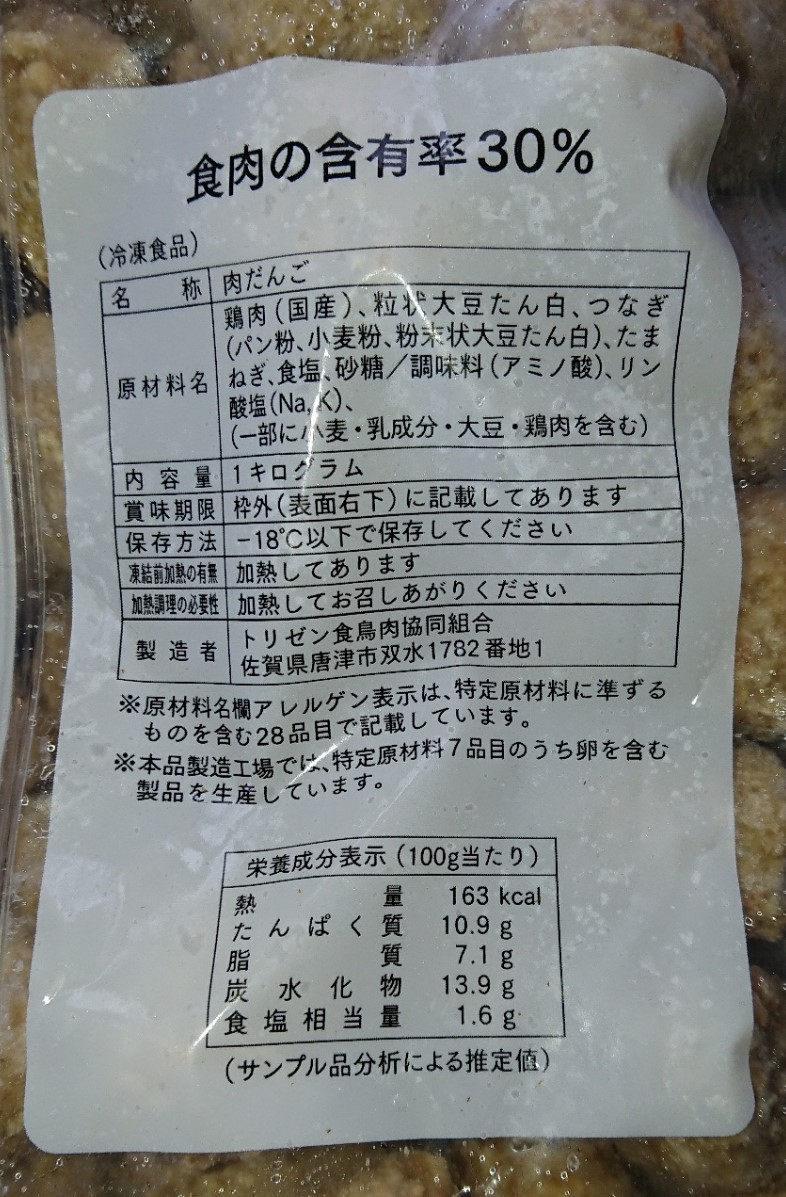 食肉の含有率30%
(冷凍食品)
名 称 肉だんご
原材料名 鶏肉(国産)、粒状大豆たん白、つなぎ
(パン粉、小麦粉、粉末状大豆たん白)、たま
ねぎ、食塩、砂糖/調味料(アミノ酸)、リン
酸塩(Na,K)、
(一部に小麦・乳成分・大豆・鶏肉を含む)
内容量 1キログラム
賞味期限 枠外(表面右下)に記載してあります
保存方法 -18℃以下で保存してください
凍結前加熱の有無 加熱してあります
加熱調理の必要性 加熱してお召しあがりください
製造者 トリゼン食鳥肉協同組合
佐賀県唐津市双水1782番地1
※原材料名欄アレルゲン表示は、特定原材料に準ずる
ものを含む28品目で記載しています。
※本品製造工場では、特定原材料7品目のうち卵を含む
製品を生産しています。
栄養成分表示(100g当たり)
熱量 163 kcal
たんぱく質 10.9 g
脂質 7.1 g
炭水化物 13.9 g
食塩相当量 1.6 g
(サンプル品分析による推定値)